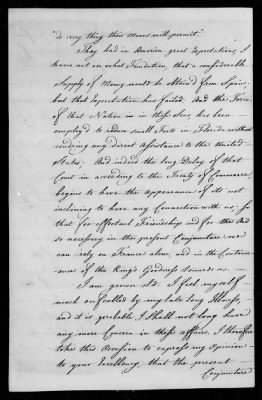 "do every thing their means will permit."
They had in America great Expectations, I
know not on what Foundation, that a considerable
Supply of Money would be obtain'd from Spain;
but that Expectation has failed: And the Force
of that Nation in these Seas has been
employ'd to reduce small Forts in Florida without
rendring any direct Assistance to the United
States; And indeed the long Delay of that
Court in acceding to the Treaty of Commerce,
begins to have the Appearance of its not
inclining to have any Connection with us; so
that for effectual Friendship and for the Aid
so necessary in the present Conjuncture, we
can rely on France alone, and in the Continu-
ance of the King's Goodness towards us.
I am grown old. I feel myself
much enfeebled by my late long Illness,
and it is probable I shall not long have
any more Concern in these affairs. I therefore
take this Occasion to express my Opinion
to your Excellency, that the present
Conjuncture